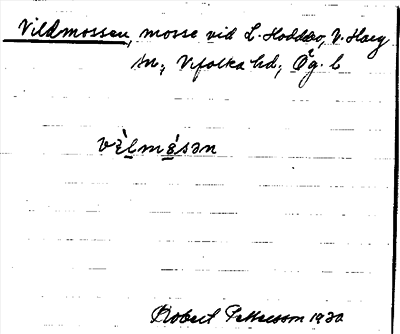 Vildmossen, mosse vid L. Hoddeo, V. Harg
sn, Vifolka hd, Ög. l
vèlmósən
Robert Pettersson 1930